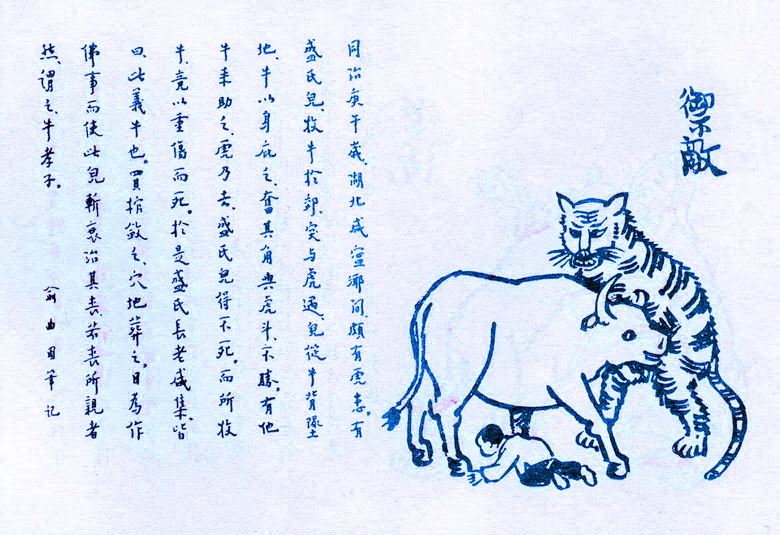 禦敵
同治庚午歲、湖北咸寧鄉間、頗有虎患。有
盛氏兒、牧牛於郊、突与虎遇、兒從牛背墜
地、牛以身庇之、奮其角與虎斗、不勝。有他
牛來助之、虎乃去、盛氏兒得不死。而所牧
牛、竟以重傷而死。於是盛氏長老咸集、皆
曰、此義牛也。買棺斂之、穴地葬之。日為作
佛事而使此兒斬衰治其喪、若喪所親者
然、謂之牛孝子。
俞曲园筆记